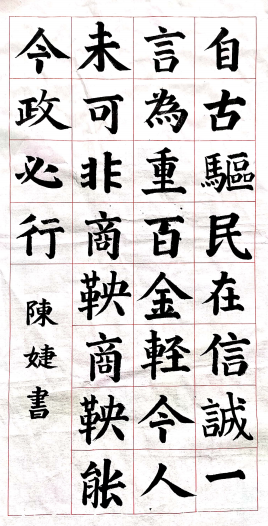 自古驅民在信誠一
言為重百金輕今人
未可非商鞅商鞅能
令政必行
陳婕書